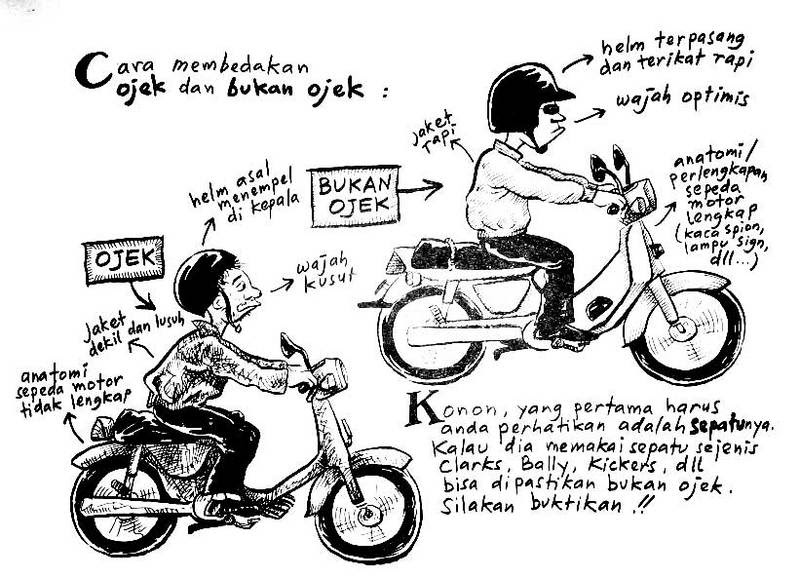 Cara membedakan
ojek dan bukan ojek :
helm terpasang
dan terikat rapi
wajah optimis
jaket
rapi
anatomi/
perlengkapan
sepeda
motor
lengkap
(kaca spion,
lampu sign,
dll...)
BUKAN
OJEK
helm asal
menempel
di kepala
OJEK
wajah
kusut
jaket
dekil dan lusuh
anatomi
sepeda motor
tidak lengkap
Konon, yang pertama harus
anda perhatikan adalah sepatunya.
Kalau dia memakai sepatu sejenis
Clarks, Bally, Kickers, dll
bisa dipastikan bukan ojek.
Silakan buktikan!!